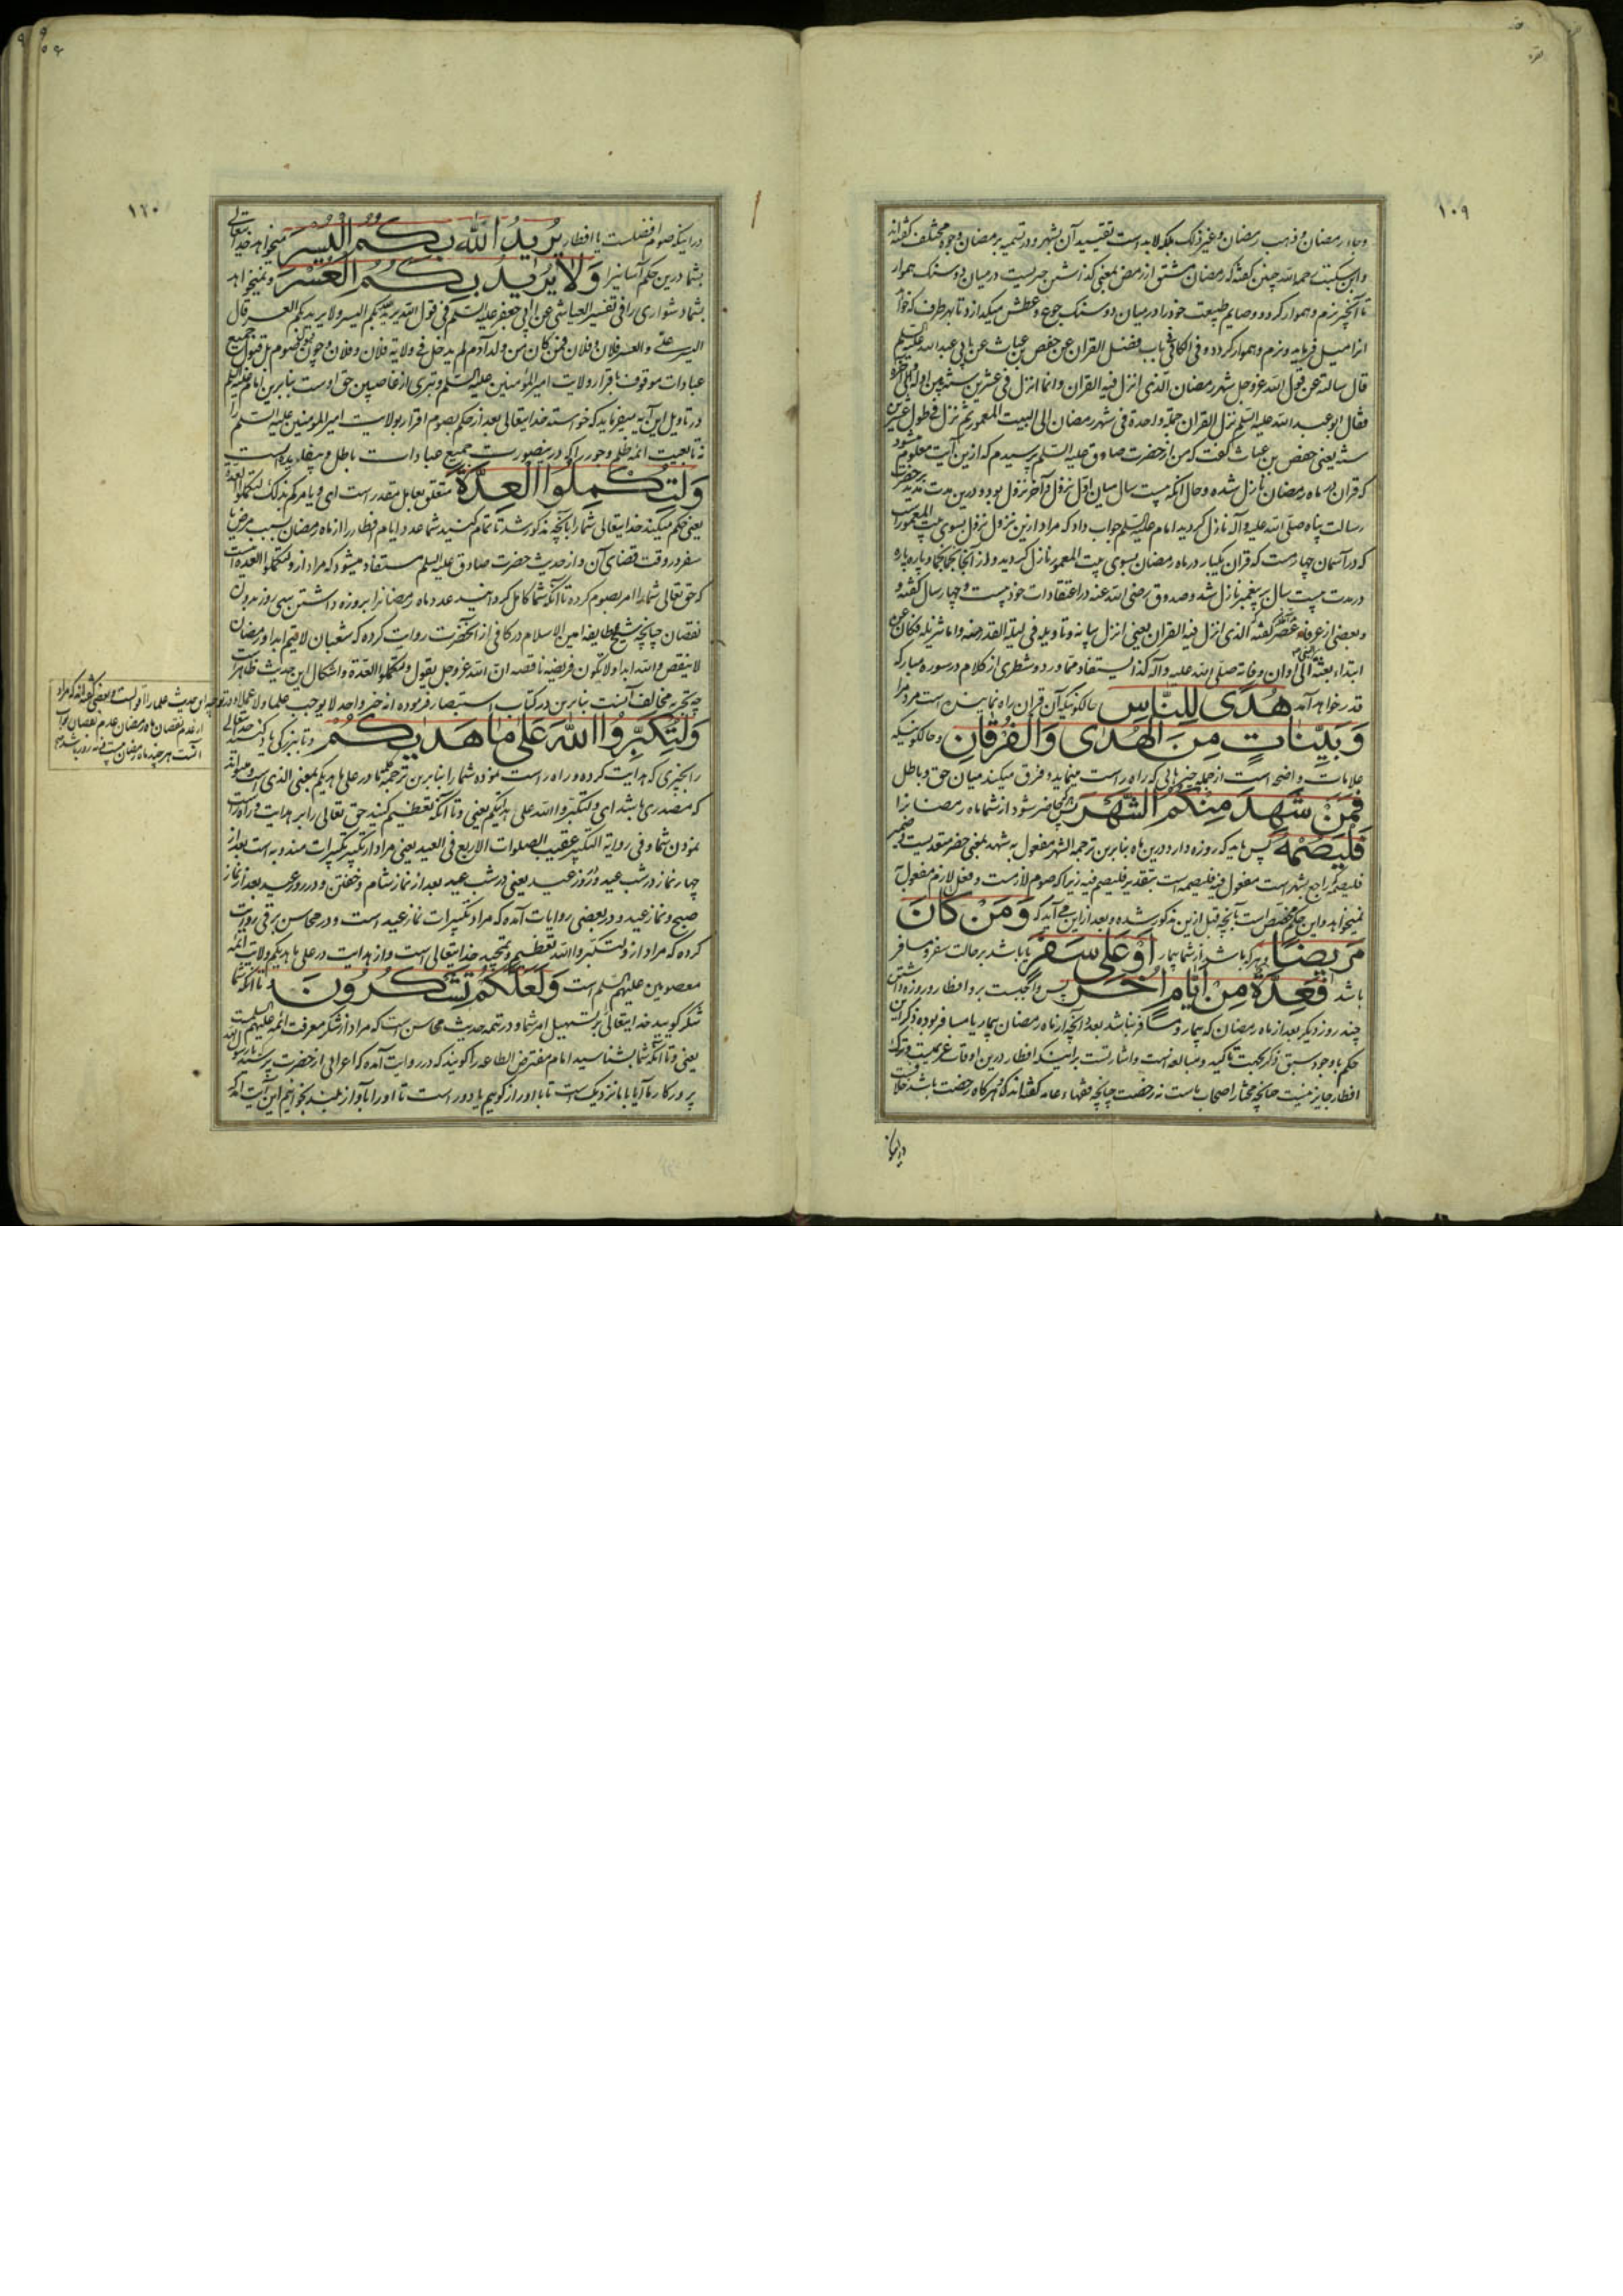 ۱۰۹
وجاور رمضان و ذهب رمضان و غیر ذلک بلکه لابد است تقیید آن بشهر و در تسمیه برمضان وجوه مختلف گفته‌اند
تا آنچه نرم و هموار گردد و صایم طبیعت خود را در میان دو سنک جوع و عطش میکدازد تا بهر طرف که خواهد
انرا میل فرماید و نرم و هموار کردد و فی الکافی باب فضل القران عن حفص بن غیاث عن ابی عبد الله علیه السلم
قال سالته عن قول الله عز و جل شهر رمضان الذی انزل فیه القران و انما انزل فی عشرین سنة بین اوله و اخره
فقال ابو عبد الله علیه السلم نزل القران جملة واحدة فی شهر رمضان الی البیت المعمور ثم نزل فی طول عشرین
سنة یعنی حفص بن غیاث گفت که من از حضرت صادق علیه السلم پرسیدم که ازین آیت معلوم میشود
که قران در ماه رمضان نازل شده و حال انکه بیست سال میان اول نزول و آخر نزول بود و درین مدت بتدریج بر حضرت
رسالت پناه صلی الله علیه و اله نازل کردید امام علیه السلم جواب داد که مراد ازین نزول نزول بسوی بیت المعمور است
که در آسمان چهارست که قران یکبار در ماه رمضان بسوی بیت المعمور نازل کردید و از آنجا
در مدت بیست سال بر پیغمبر نازل شد و صدوق رضی الله عنه در اعتقادات خود بیست و چهار سال گفته و
و بعضی از عرفاء عصر گفته الذی انزل فیه القران یعنی انزل بیانه و تاویله فی لیلة القدر
ابتداء بعثة النبی الی اوان وفاته صلی الله علیه و اله کذا یستفاد مما ورد و شطری از کلام در سوره مبارکه
قدر خواهد آمد هُدًى لِلنَّاسِ حالکونیکه آن قران راه نماینده است مر مردمرا
وَبَيِّنَاتٍ مِنَ الْهُدٰى وَالْفُرْقَانِ و حالکونیکه
علامات واضحه است از جمله چیزهائی که راه راست مینماید و فرق میکند میان حق و باطل
فَمَنْ شَهِدَ مِنْكُمُ الشَّهْرَ پس هر که حاضر شود از شما ماه رمضانرا
فَلْيَصُمْهُ پس باید که روزه دارد درین ماه بنابرین ترجمه الشهر مفعول به شهد بمعنی حضر متعدیست و ضمیر
فلیصمه که راجع بشهر است مفعول فیه فلیصمه است بتقدیر فلیصم فیه زیرا که صوم لازمست و فعل لازم مفعول به
نمیخواهد و این حکم مختص است بآنچه قبل ازین مذکور شده و بعد ازین می آید که وَمَنْ كَانَ
مَرِيضًا و هر که باشد از شما بیمار أَوْ عَلٰى سَفَرٍ یا باشد بر حالت سفر و مسافر
باشد فَعِدَّةٌ مِنْ أَيَّامٍ أُخَرَ پس واجبست برو افطار و روزه داشتن
چند روز دیگر بعد از ماه رمضان که بیمار و مسافر نباشد بعدد آنچه از ماه رمضان بیمار یا مسافر بوده ذکر این
حکم با وجود سبق ذکر بجهت تاکید و مبالغه است و اشارتست براینکه افطار درین اوقات عزیمت و ترک
افطار جایز نیست چنانچه مختار اصحاب ماست نه رخصت چنانچه فقهاء عامه گفته‌اند که هر کاه رخصت باشد
۱۱۰
در اینکه صوم افضلست یا افطار يُرِيدُ اللّٰهُ بِكُمُ الْيُسْرَ میخواهد خدایتعالی
بشما درین حکم آسانیرا وَلَا يُرِيدُ بِكُمُ الْعُسْرَ و نمیخواهد
بشما دشواری را فی تفسیر العیاشی عن ابی جعفر علیه السلم فی قول الله یرید الله بکم الیسر و لا یرید بکم العسر قال
الیسر علی و العسر فلان و فلان فمن کان من ولد آدم لم یدخل فی ولایة فلان و فلان و چون صوم بل قبول جمیع
عبادات موقوف باقرار ولایت امیر المؤمنین علیه السلم و تبری از غاصبین حق اوست بنابرین امام علیه السلم
در تاویل این آیه میفرماید که خواسته خدایتعالی بعد از حکم بصوم اقرار بولایت امیر المومنین علیه السلم را
نه تابعیت ائمه ظلم و جور را که درینصورت جمیع عبادات باطل و بیفایده است
وَلِتُكْمِلُوا الْعِدَّةَ متعلق بعامل مقدر است ای و یامرکم بذلک لتکملوا العدة
یعنی حکم میکند خدایتعالی شما را بآنچه مذکور شد تا تمام کنید شما عدد ایام افطار را از ماه رمضان بسبب مرض یا
سفر در وقت قضای آن و از حدیث حضرت صادق علیه السلم مستفاد میشود که مراد از و لتکملوا العدة آنست
که حق تعالی شما را امر بصوم کرده تا آنکه شما کامل کردانید عدد ماه رمضانرا بروزه داشتن سی روز بدون
نقصان چنانچه شیخ طایفه امین الاسلام در کافی از آنحضرت روایت کرده که شعبان لا یتم ابدا و رمضان
لا ینقص و الله ابدا و لا تکون فریضة ناقصة ان الله عز و جل یقول و لتکملوا العدة و اشکال این حدیث ظاهرا
وَلِتُكَبِّرُوا اللّٰهَ عَلٰى مَا هَدٰيكُمْ و تا ببزرکی یاد کنید خدایتعالی
را بچیزی که هدایت کرده و راه راست نموده شما را بنابرین ترجمه کلمه ما در علی ما هدیکم بمعنی الذی است و میتواند
که مصدری باشد ای و لتکبروا الله علی هدایتکم یعنی و تا آنکه تعظیم کنید حق تعالی را بر هدایت و راه راست
نمودن شما و فی روایة التکبیر عقیب الصلوات الاربع فی العید یعنی مراد از تکبیر تکبیرات مندوبه است بعد از
چهار نماز در شب عید و روز عید یعنی در شب عید بعد از نماز شام و خفتن و در روز عید بعد از نماز
صبح و نماز عید و در بعضی روایات آمده که مراد تکبیرات نماز عید است و در محاسن برقی روایت
کرده که مراد از و لتکبروا الله تعظیم و تمجید خدایتعالی است و از هدایت در علی ما هدیکم ولایت ائمه
معصومین علیهم السلم است وَلَعَلَّكُمْ تَشْكُرُونَ و تا آنکه شما
شکر گویید خدایتعالی را بر تسهیل امر شما و در تتمه حدیث محاسن است که مراد از شکر معرفت ائمه علیهم السلم است
یعنی و تا آنکه شما بشناسید امام مفترض الطاعه را گویند که در روایت آمده که اعرابی از حضرت پرسید که یا رسول الله
پروردگار ما آیا بما نزدیک است تا با او راز گوییم یا دور است تا او را بآواز بلند بخوانیم این آیت آمد